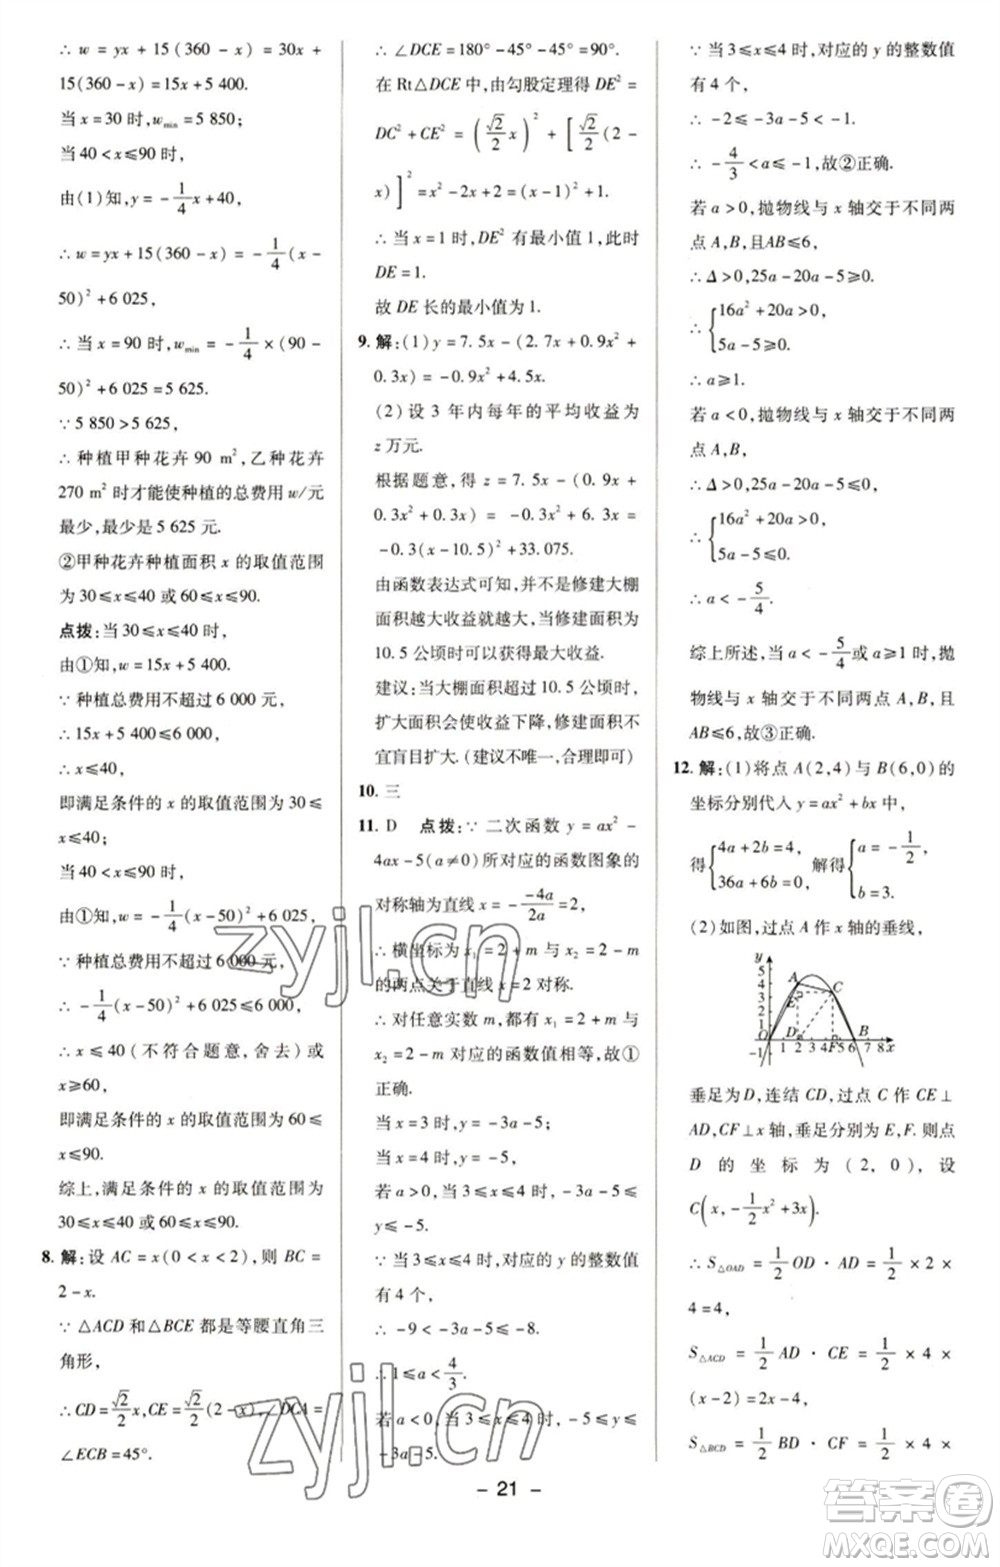 ∴ w = yx + 15(360 - x) = 30x +
15(360 - x) = 15x + 5 400.
当 x = 30 时, w_min = 5 850;
当 40 < x ≤ 90 时,
由(1)知, y = -1/4 x + 40,
∴ w = yx + 15(360 - x) = -1/4 (x -
50)² + 6 025,
∴ 当 x = 90 时, w_min = -1/4 × (90 -
50)² + 6 025 = 5 625.
∵ 5 850 > 5 625,
∴ 种植甲种花卉 90 m²,乙种花卉
270 m² 时才能使种植的总费用 w/元
最少,最少是 5 625 元.
②甲种花卉种植面积 x 的取值范围
为 30 ≤ x ≤ 40 或 60 ≤ x ≤ 90.
点拨:当 30 ≤ x ≤ 40 时,
由①知, w = 15x + 5 400.
∵ 种植总费用不超过 6 000 元,
∴ 15x + 5 400 ≤ 6 000,
∴ x ≤ 40.
即满足条件的 x 的取值范围为 30 ≤
x ≤ 40,
当 40 < x ≤ 90 时,
由①知, w = -1/4 (x - 50)² + 6 025,
∵ 种植总费用不超过 6 000 元,
∴ -1/4 (x - 50)² + 6 025 ≤ 6 000,
∴ x ≤ 40 (不符合题意,舍去)或
x ≥ 60,
即满足条件的 x 的取值范围为 60 ≤
x ≤ 90.
综上,满足条件的 x 的取值范围为
30 ≤ x ≤ 40 或 60 ≤ x ≤ 90.
8. 解:设 AC = x(0 < x < 2),则 BC =
2 - x.
∵ △ACD 和△BCE 都是等腰直角三
角形,
∴ CD = √2/2 x, CE = √2/2 (2 - x), ∠DCA =
∠ECB = 45°.
∴ ∠DCE = 180° - 45° - 45° = 90°.
在 Rt△DCE 中,由勾股定理得 DE² =
DC² + CE² = (√2/2 x)² + [√2/2 (2 -
x)]² = x² - 2x + 2 = (x - 1)² + 1.
∴ 当 x = 1 时, DE² 有最小值 1,此时
DE = 1.
故 DE 长的最小值为 1.
9. 解:(1) y = 7.5x - (2.7x + 0.9x² +
0.3x) = -0.9x² + 4.5x.
(2)设 3 年内每年的平均收益为
z 万元.
根据题意,得 z = 7.5x - (0.9x +
0.3x² + 0.3x) = -0.3x² + 6.3x =
-0.3(x - 10.5)² + 33.075.
由函数表达式可知,并不是修建大棚
面积越大收益就越大,当修建面积为
10.5 公顷时可以获得最大收益.
建议:当大棚面积超过 10.5 公顷时,
扩大面积会使收益下降,修建面积不
宜盲目扩大. (建议不唯一,合理即可)
10. 三
11. D 点拨:∵ 二次函数 y = ax² -
4ax - 5(a ≠ 0)所对应的函数图象的
对称轴为直线 x = -(-4a)/2a = 2,
∴ 横坐标为 x₁ = 2 + m 与 x₂ = 2 - m
的两点关于直线 x = 2 对称.
∴ 对任意实数 m,都有 x₁ = 2 + m 与
x₂ = 2 - m 对应的函数值相等,故①
正确.
当 x = 3 时, y = -3a - 5;
当 x = 4 时, y = -5;
若 a > 0,当 3 ≤ x ≤ 4 时, -3a - 5 ≤
y ≤ -5.
∵ 当 3 ≤ x ≤ 4 时,对应的 y 的整数值
有 4 个,
∴ -9 < -3a - 5 ≤ -8.
∴ 1 ≤ a < 4/3.
若 a < 0,当 3 ≤ x ≤ 4 时, -5 ≤ y ≤
-3a - 5.
∵ 当 3 ≤ x ≤ 4 时,对应的 y 的整数值
有 4 个,
∴ -2 ≤ -3a - 5 < -1.
∴ -4/3 < a ≤ -1,故②正确.
若 a > 0,抛物线与 x 轴交于不同两
点 A,B,且AB ≤ 6,
∴ Δ > 0, 25a - 20a - 5 ≥ 0.
∴ { 16a² + 20a > 0,
5a - 5 ≥ 0.
∴ a ≥ 1.
若 a < 0,抛物线与 x 轴交于不同两
点 A,B,
∴ Δ > 0, 25a - 20a - 5 ≤ 0,
∴ { 16a² + 20a > 0,
5a - 5 ≤ 0.
∴ a < -5/4.
综上所述,当 a < -5/4 或 a ≥ 1 时,抛
物线与 x 轴交于不同两点 A,B,且
AB ≤ 6,故③正确.
12. 解:(1)将点 A(2,4)与 B(6,0)的
坐标分别代入 y = ax² + bx 中,
得 { 4a + 2b = 4, 36a + 6b = 0, 解得 { a = -1/2, b = 3.
(2)如图,过点 A 作 x 轴的垂线,
y
5
4
3
2
1
A
C
E
O
D
F
B
-1
1 2 3 4 5 6 7 8 x
垂足为 D,连结 CD,过点 C 作 CE⊥
AD, CF⊥x 轴,垂足分别为 E,F. 则点
D 的坐标为(2,0),设
C(x, -1/2 x² + 3x).
∴ S△OAD = 1/2 OD · AD = 1/2 × 2 ×
4 = 4,
S△ACD = 1/2 AD · CE = 1/2 × 4 ×
(x - 2) = 2x - 4,
S△BCD = 1/2 BD · CF = 1/2 × 4 ×
- 21 -
zyjl.cn
zyjl.cn
答案圈
MXQE.COM